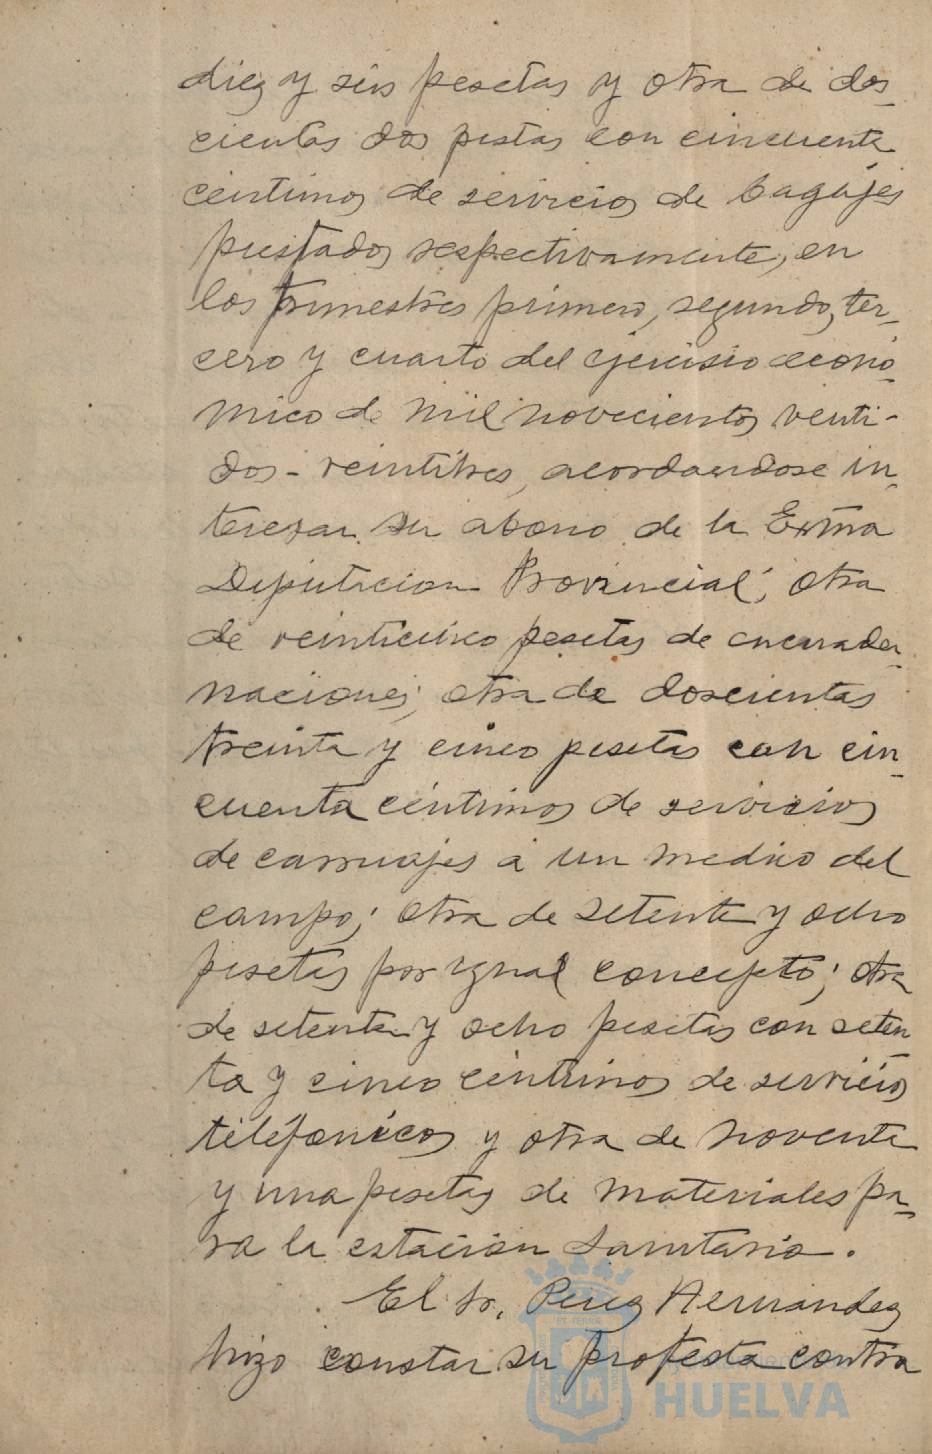 diez y seis pesetas y otra de dos-
cientas dos pestas con cincuenta
centimos de servicios de bagajes
prestados respectivamente, en
los trimestres primero, segundo, ter-
cero y cuarto del ejercisio econo-
mico de mil novecientos venti-
dos-veintitres, acordandose in-
teresar su abono de la Exma
Diputacion Provincial; otra
de veinticinco pesetas de encuader-
naciones; otra de doscientas
treinta y cinco pesetas con cin-
cuenta centimos de servicios
de carruajes a un medico del
campo; otra de setenta y ocho
pesetas por igual concepto; otra
de setenta y ocho pesetas con seten
ta y cinco centimos de servicios
telefonicos y otra de noventa
y una pesetas de materiales pa-
ra la estacion Sanitaria.
El Sr. Perez Hernandez
hizo constar su protesta contra
HUELVA